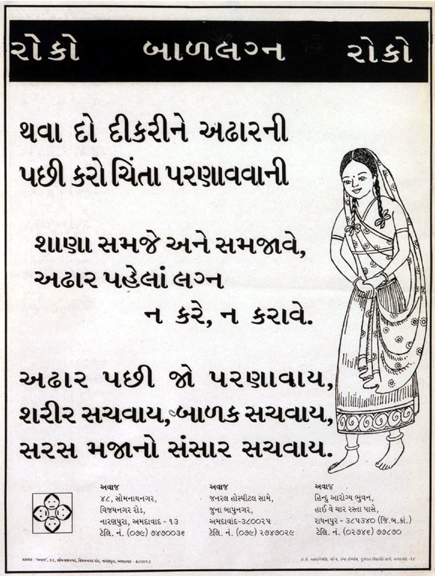 રોકો બાળલગ્ન રોકો
થવા દો દીકરીને અઢારની
પછી કરો ચિંતા પરણાવવાની
શાણા સમજે અને સમજાવે,
અઢાર પહેલાં લગ્ન
ન કરે, ન કરાવે.
અઢાર પછી જો પરણાવાય,
શરીર સચવાય, બાળક સચવાય,
સરસ મજાનો સંસાર સચવાય.
અવાજ
૪૮, સોમનાથનગર,
વિજયનગર રોડ,
નારણપુરા, અમદાવાદ - ૧૩
ટેલિ. નં. (૦૭૯) ૭૪૭૦૦૩૬
અવાજ
જનરલ હોસ્પીટલ સામે,
જુના બાપુનગર,
અમદાવાદ-૩૮૦૦૨૫
ટેલિ. નં. (૦૭૯) ૨૭૪૭૦૨૯
અવાજ
હિન્દુ આરોગ્ય ભુવન,
હાઈ વે ચાર રસ્તા પાસે,
રાધનપુર - ૩૮૫૩૪૦ (જિ.બ.કાં.)
ટેલિ. નં. (૦૨૭૪૬) ૭૭૮૭૦